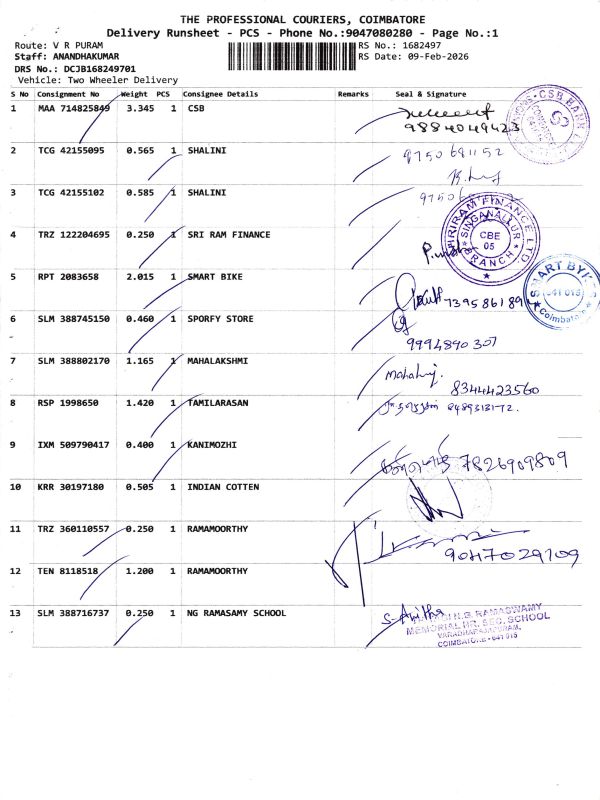 THE PROFESSIONAL COURIERS, COIMBATORE
Delivery Runsheet - PCS - Phone No.:9047080280 - Page No.:1
Route: V R PURAM RS No.: 1682497
Staff: ANANDHAKUMAR RS Date: 09-Feb-2026
DRS No.: DCJB168249701
Vehicle: Two Wheeler Delivery
S No Consignment No Weight PCS Consignee Details Remarks Seal & Signature
1 MAA 714825849 3.345 1 CSB
9884049423
CSB BANK
2 TCG 42155095 0.565 1 SHALINI 9750681152
3 TCG 42155102 0.585 1 SHALINI
4 TRZ 122204695 0.250 1 SRI RAM FINANCE
SHRIRAM FINANCE LTD.
SINGANALLUR
CBE
05
BRANCH
5 RPT 2083658 2.015 1 SMART BIKE
7395861891
SMART BYKES
641 015
Coimbatore
6 SLM 388745150 0.460 1 SPORFY STORE
9994890307
7 SLM 388802170 1.165 1 MAHALAKSHMI
8344423560
8 RSP 1998650 1.420 1 TAMILARASAN 8489313172.
9 IXM 509790417 0.400 1 KANIMOZHI
7826909809
10 KRR 30197180 0.505 1 INDIAN COTTEN
11 TRZ 360110557 0.250 1 RAMAMOORTHY
9047029109
12 TEN 8118518 1.200 1 RAMAMOORTHY
13 SLM 388716737 0.250 1 NG RAMASAMY SCHOOL S. Anitha
N.G. RAMASWAMY
MEMORIAL HR. SEC. SCHOOL
VARADHARAJAPURAM,
COIMBATORE - 641 015